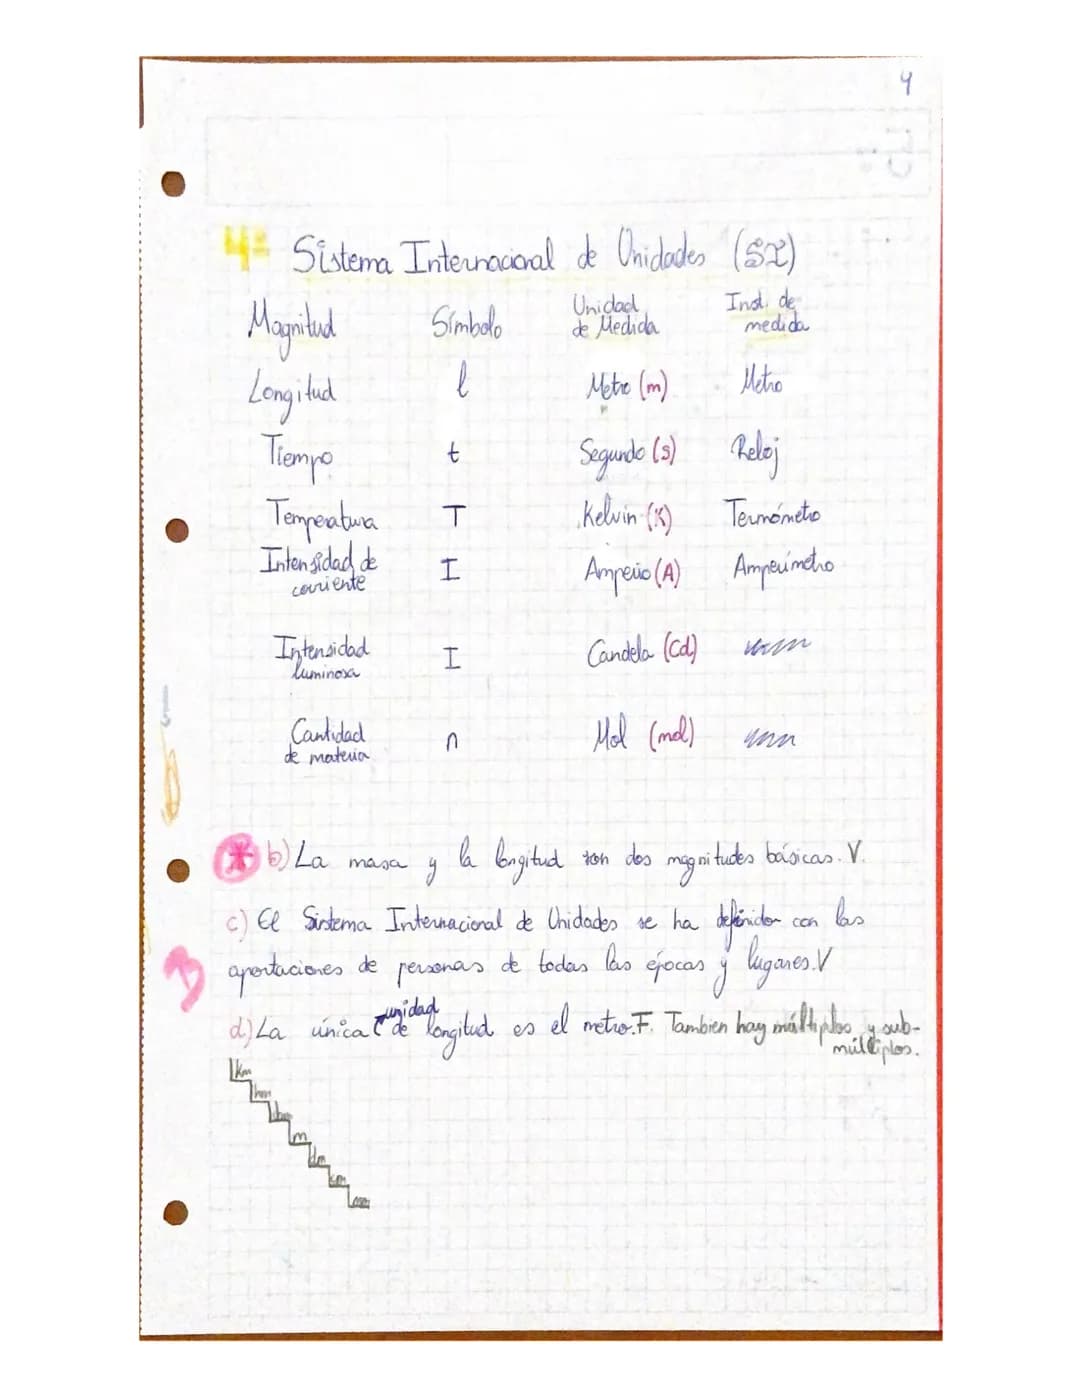 4
4- Sistema Internacional de Unidades (SI)
Magnitud Símbolo Unidad de Medida Inst. de medida
Longitud l Metro (m) Metro
Tiempo t Segundo (s) Reloj
Temperatura T Kelvin (K) Termómetro
Intensidad de corriente I Amperio (A) Amperímetro
Intensidad luminosa I Candela (Cd)
Cantidad de materia n Mol (mol)
* b) La masa y la longitud son dos magnitudes básicas. V.
c) El Sistema Internacional de Unidades se ha definido con las
aportaciones de personas de todas las épocas y lugares. V
d) La única unidad de longitud es el metro. F. Tambien hay múltiplos y sub-
múltiplos.
km
hm
dam
m
dm
cm
mm